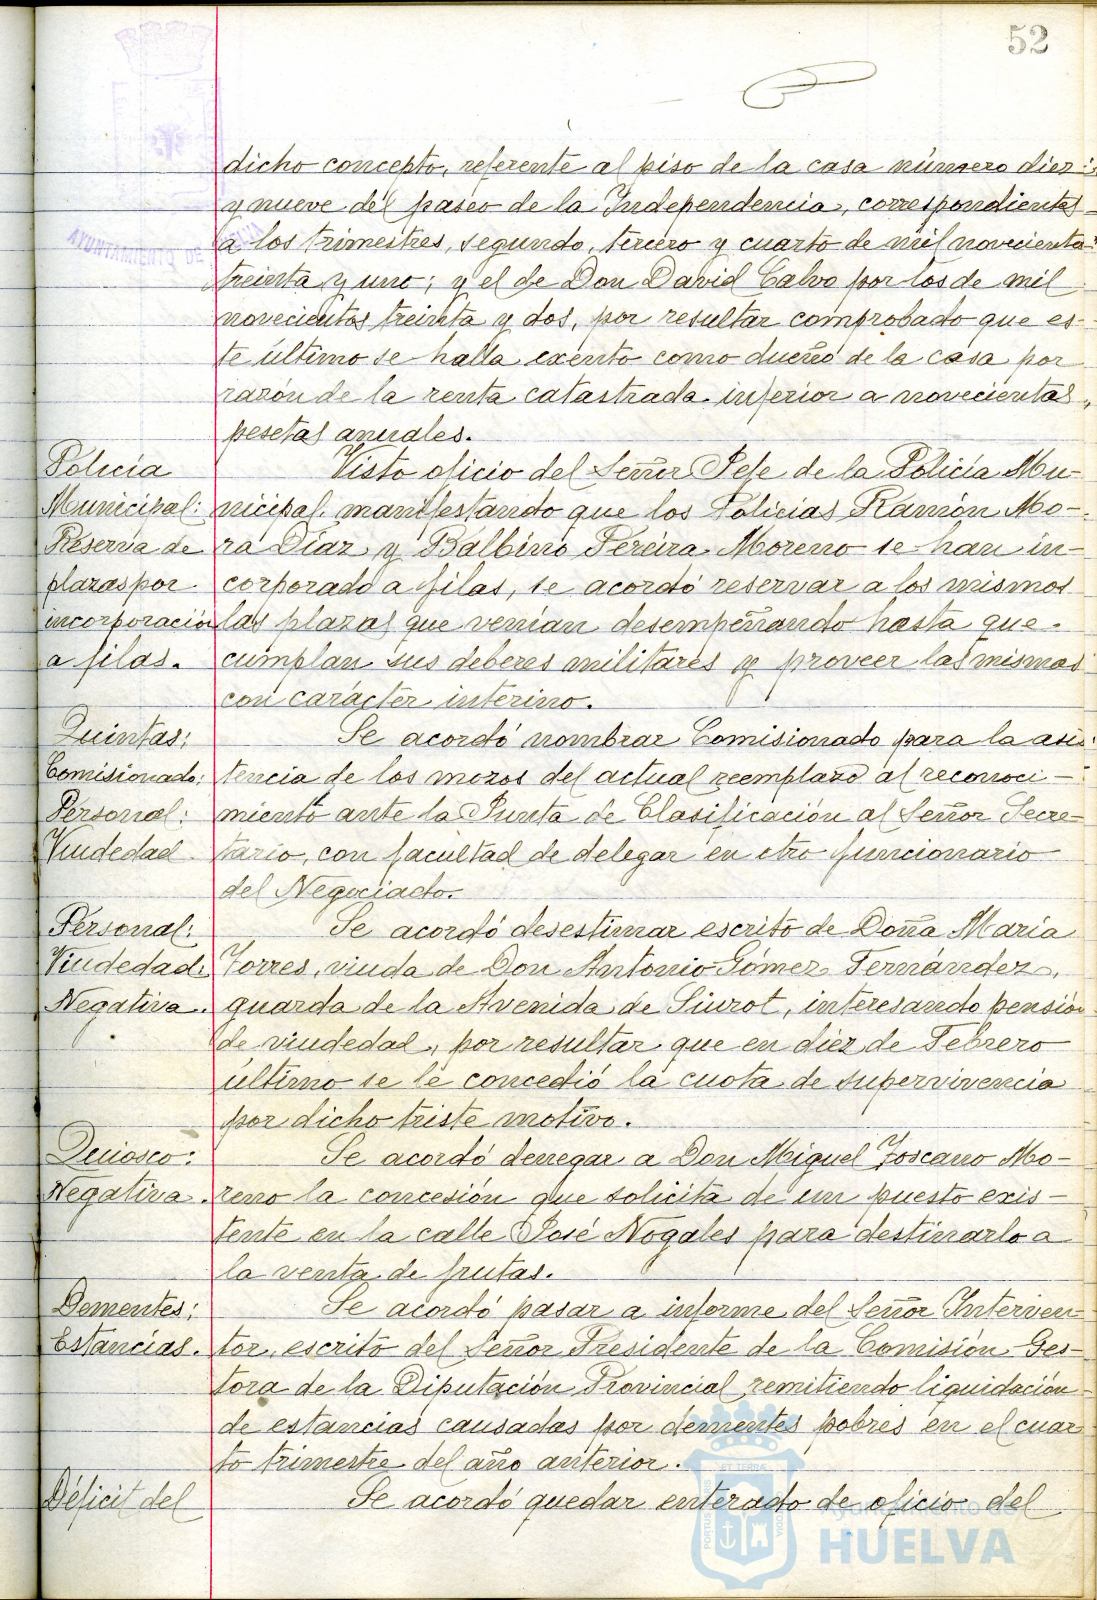 52
dicho concepto, referente al piso de la casa número diez
y nueve del paseo de la Independencia, correspondientes
a los trimestres, segundo, tercero y cuarto de mil novecientos
treinta y uno; y el de Don David Calvo por los de mil
novecientos treinta y dos, por resultar comprobado que es-
te último se halla exento como dueño de la casa por
razón de la renta catastrada inferior a novecientas
pesetas anuales.
Policía
Municipal:
Reserva de
plazas por
incorporación
a filas.
Visto oficio del Señor Jefe de la Policía Mu-
nicipal, manifestando que los Policias Ramón Mo-
ra Díaz y Balbino Pereira Moreno se han in-
corporado a filas, se acordó reservar a los mismos
las plazas que venían desempeñando hasta que
cumplan sus deberes militares y proveer las mismas
con caracter interino.
Quintas:
Comisionado:
Personal:
Viudedad
Se acordó nombrar Comisionado para la asis-
tencia de los mozos del actual reemplazo al reconoci-
miento ante la Junta de Clasificación al Señor Secre-
tario, con facultad de delegar en otro funcionario
del Negociado.
Personal:
Viudedad:
Negativa.
Se acordó desestimar escrito de Doña María
Torres, viuda de Don Antonio Gómez Fernández,
guarda de la Avenida de Siurot, interesando pensión
de viudedad, por resultar que en diez de Febrero
último se le concedió la cuota de supervivencia
por dicho triste motivo.
Quiosco:
Negativa.
Se acordó denegar a Don Miguel Toscano Mo-
reno la concesión que solicita de un puesto exis-
tente en la calle José Nogales para destinarlo a
la venta de frutas.
Dementes:
Estancias.
Se acordó pasar a informe del Señor Interven-
tor, escrito del Señor Presidente de la Comisión Ges-
tora de la Diputación Provincial remitiendo liquidación
de estancias causadas por dementes pobres en el cuar-
to trimestre del año anterior.
Déficit del
Se acordó quedar enterado de oficio del
AYUNTAMIENTO DE HUELVA
Ayuntamiento de
HUELVA